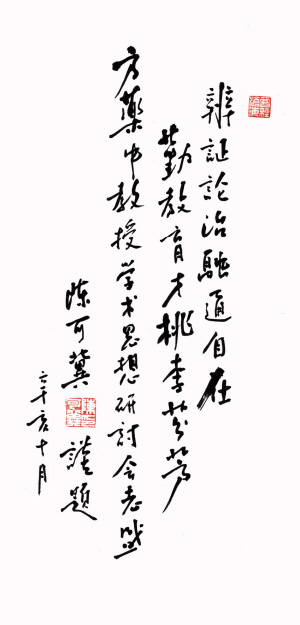 辨証論治融通自在
勤教育才桃李芬芳
方藥中教授学术思想研討会志盛
陈可冀 謹題
亥十月